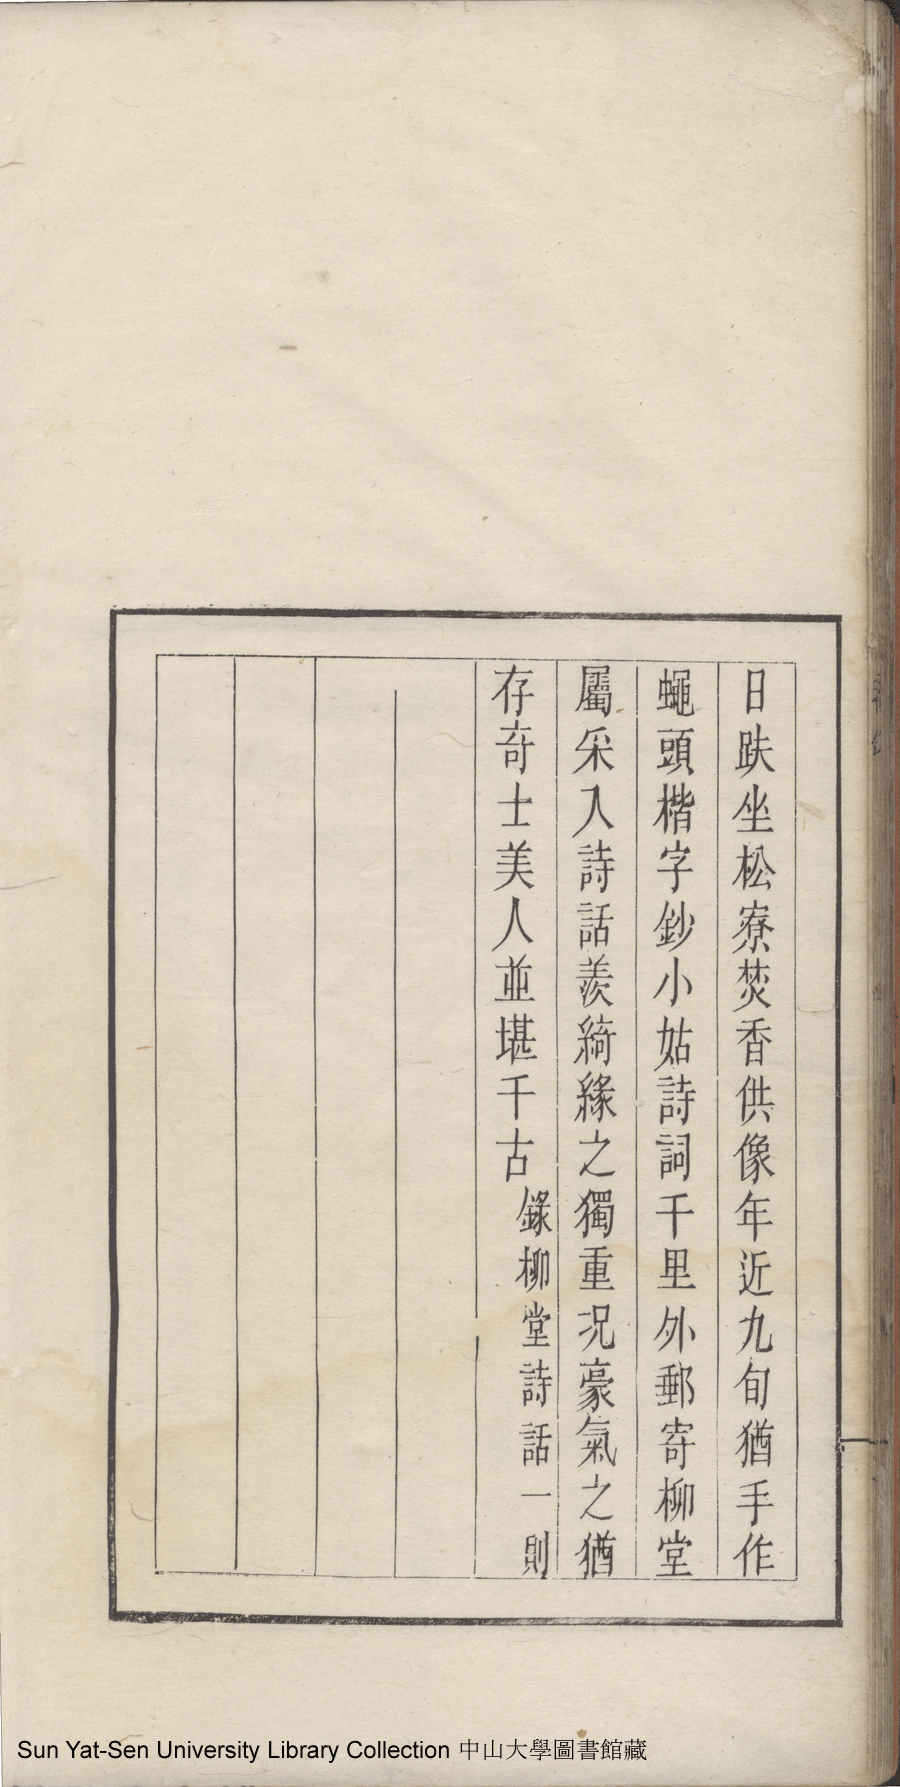 日趺坐松寮焚香供像年近九旬猶手作
蠅頭楷字鈔小姑詩詞千里外郵寄柳堂
屬采入詩話羨綺緣之獨重況豪氣之猶
存奇士美人並堪千古錄柳堂詩話一則
Sun Yat-Sen University Library Collection 中山大學圖書館藏